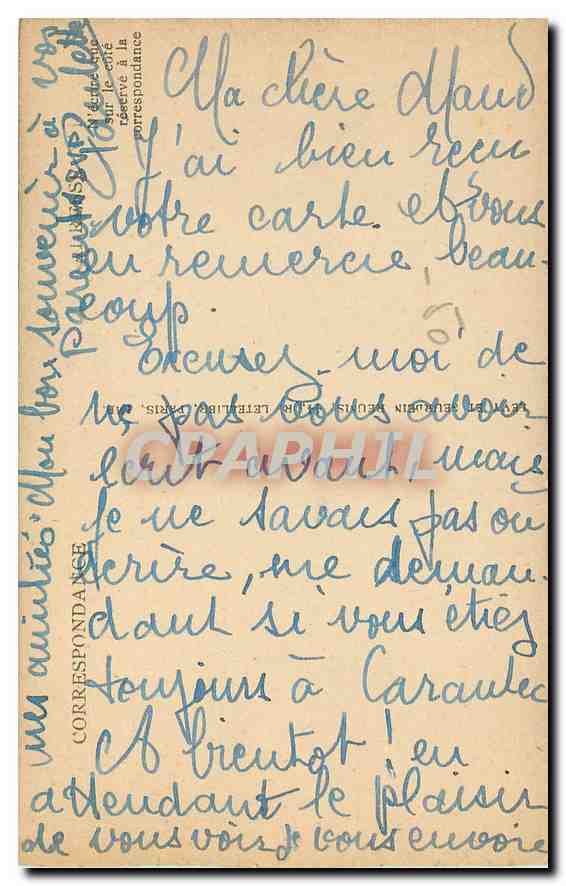 Ma chère Maud
J'ai bien reçu
votre carte et vous
en remercie beau-
coup
Excusez-moi de
ne pas vous avoir
écrit avant, mais
je ne savais pas où
écrire, me deman-
dant si vous étiez
toujours à Carantec
A bientot ! en
attendant le plaisir
de vous voir je vous envoie
mes amitiés. Mon bon souvenir à vos
Parents
Paulette
CORRESPONDANCE
ADRESSE
N'écrire que
sur le côté
réservé à la
correspondance
LEVY ET NEURDEIN REUNIS, 44, R. LETELLIER, PARIS
CPAPHIL